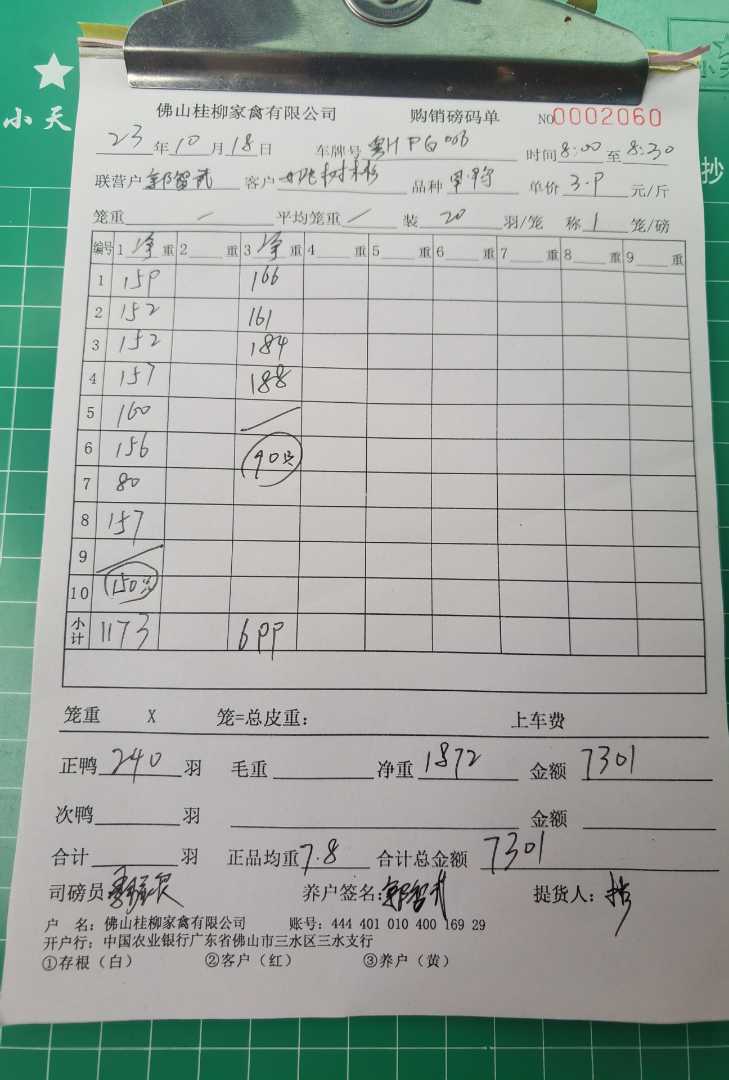 小天
抄
佛山桂柳家禽有限公司 购销磅码单 NO0002060
23年10月18日 车牌号 粤HPG 时间8:00至8:30
联营户 郭智武 客户 树彬 品种 单价 3.9 元/斤
笼重 / 平均笼重 / 装 20 羽/笼 称 1 笼/磅
编号 1 净 重 2 重 3 净 重 4 重 5 重 6 重 7 重 8 重 9 重
1 159 166
2 152 161
3 152 184
4 157 188
5 160
6 156 90只
7 80
8 157
9
10 150只
小计 1173 699
笼重 X 笼=总皮重: 上车费
正鸭 240 羽 毛重 净重 1872 金额 7301
次鸭 羽 金额
合计 羽 正品均重 7.8 合计总金额 7301
司磅员 养户签名: 郭智武 提货人:
户 名: 佛山桂柳家禽有限公司 账号: 444 401 010 400 169 29
开户行: 中国农业银行广东省佛山市三水区三水支行
①存根(白) ②客户(红) ③养户(黄)